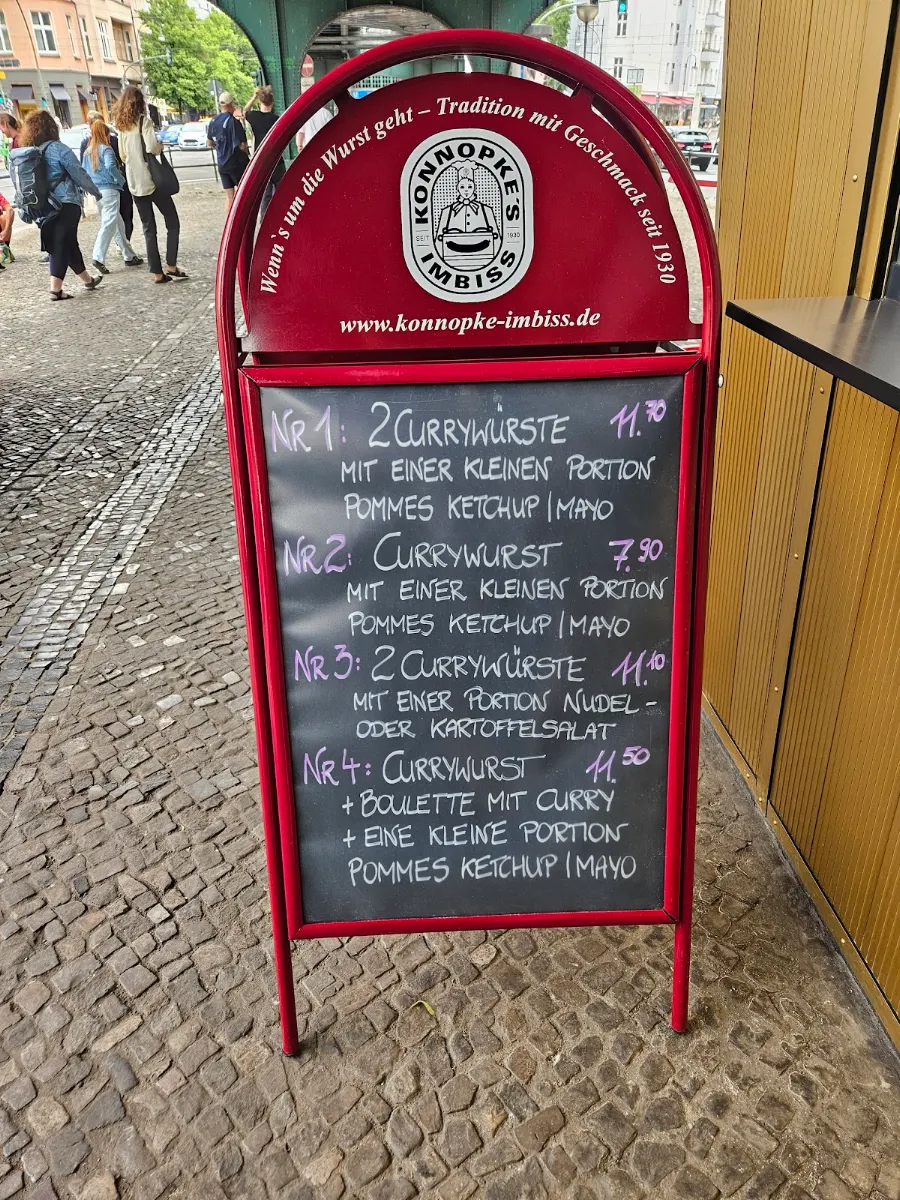 Wenn`s um die Wurst geht – Tradition mit Geschmack seit 1930
KONNOPKE'S
SEIT 1930
IMBISS
www.konnopke-imbiss.de
NR 1: 2 CURRYWÜRSTE 11.70
MIT EINER KLEINEN PORTION
POMMES KETCHUP | MAYO
NR 2: CURRYWURST 7.90
MIT EINER KLEINEN PORTION
POMMES KETCHUP | MAYO
NR 3: 2 CURRYWÜRSTE 11.10
MIT EINER PORTION NUDEL-
ODER KARTOFFELSALAT
NR 4: CURRYWURST 11.50
+ BOULETTE MIT CURRY
+ EINE KLEINE PORTION
POMMES KETCHUP | MAYO